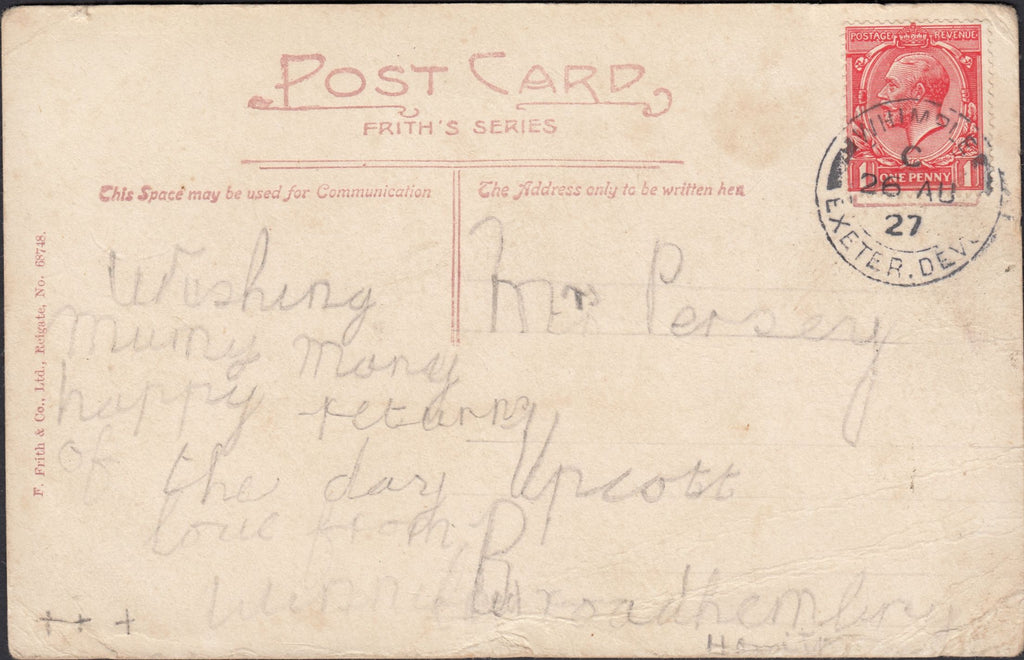 POST CARD
FRITH'S SERIES
This Space may be used for Communication
The Address only to be written here
POSTAGE REVENUE
1 ONE PENNY 1
WHIMPLE
C
26 AU
27
EXETER. DEV
F. Frith & Co., Ltd., Reigate, No. 68748.
Wishing
Mumy Many
happy returns
of
the day
love from
Winnie
+ + +
Mrs Persey
Upcott
Broadhembury